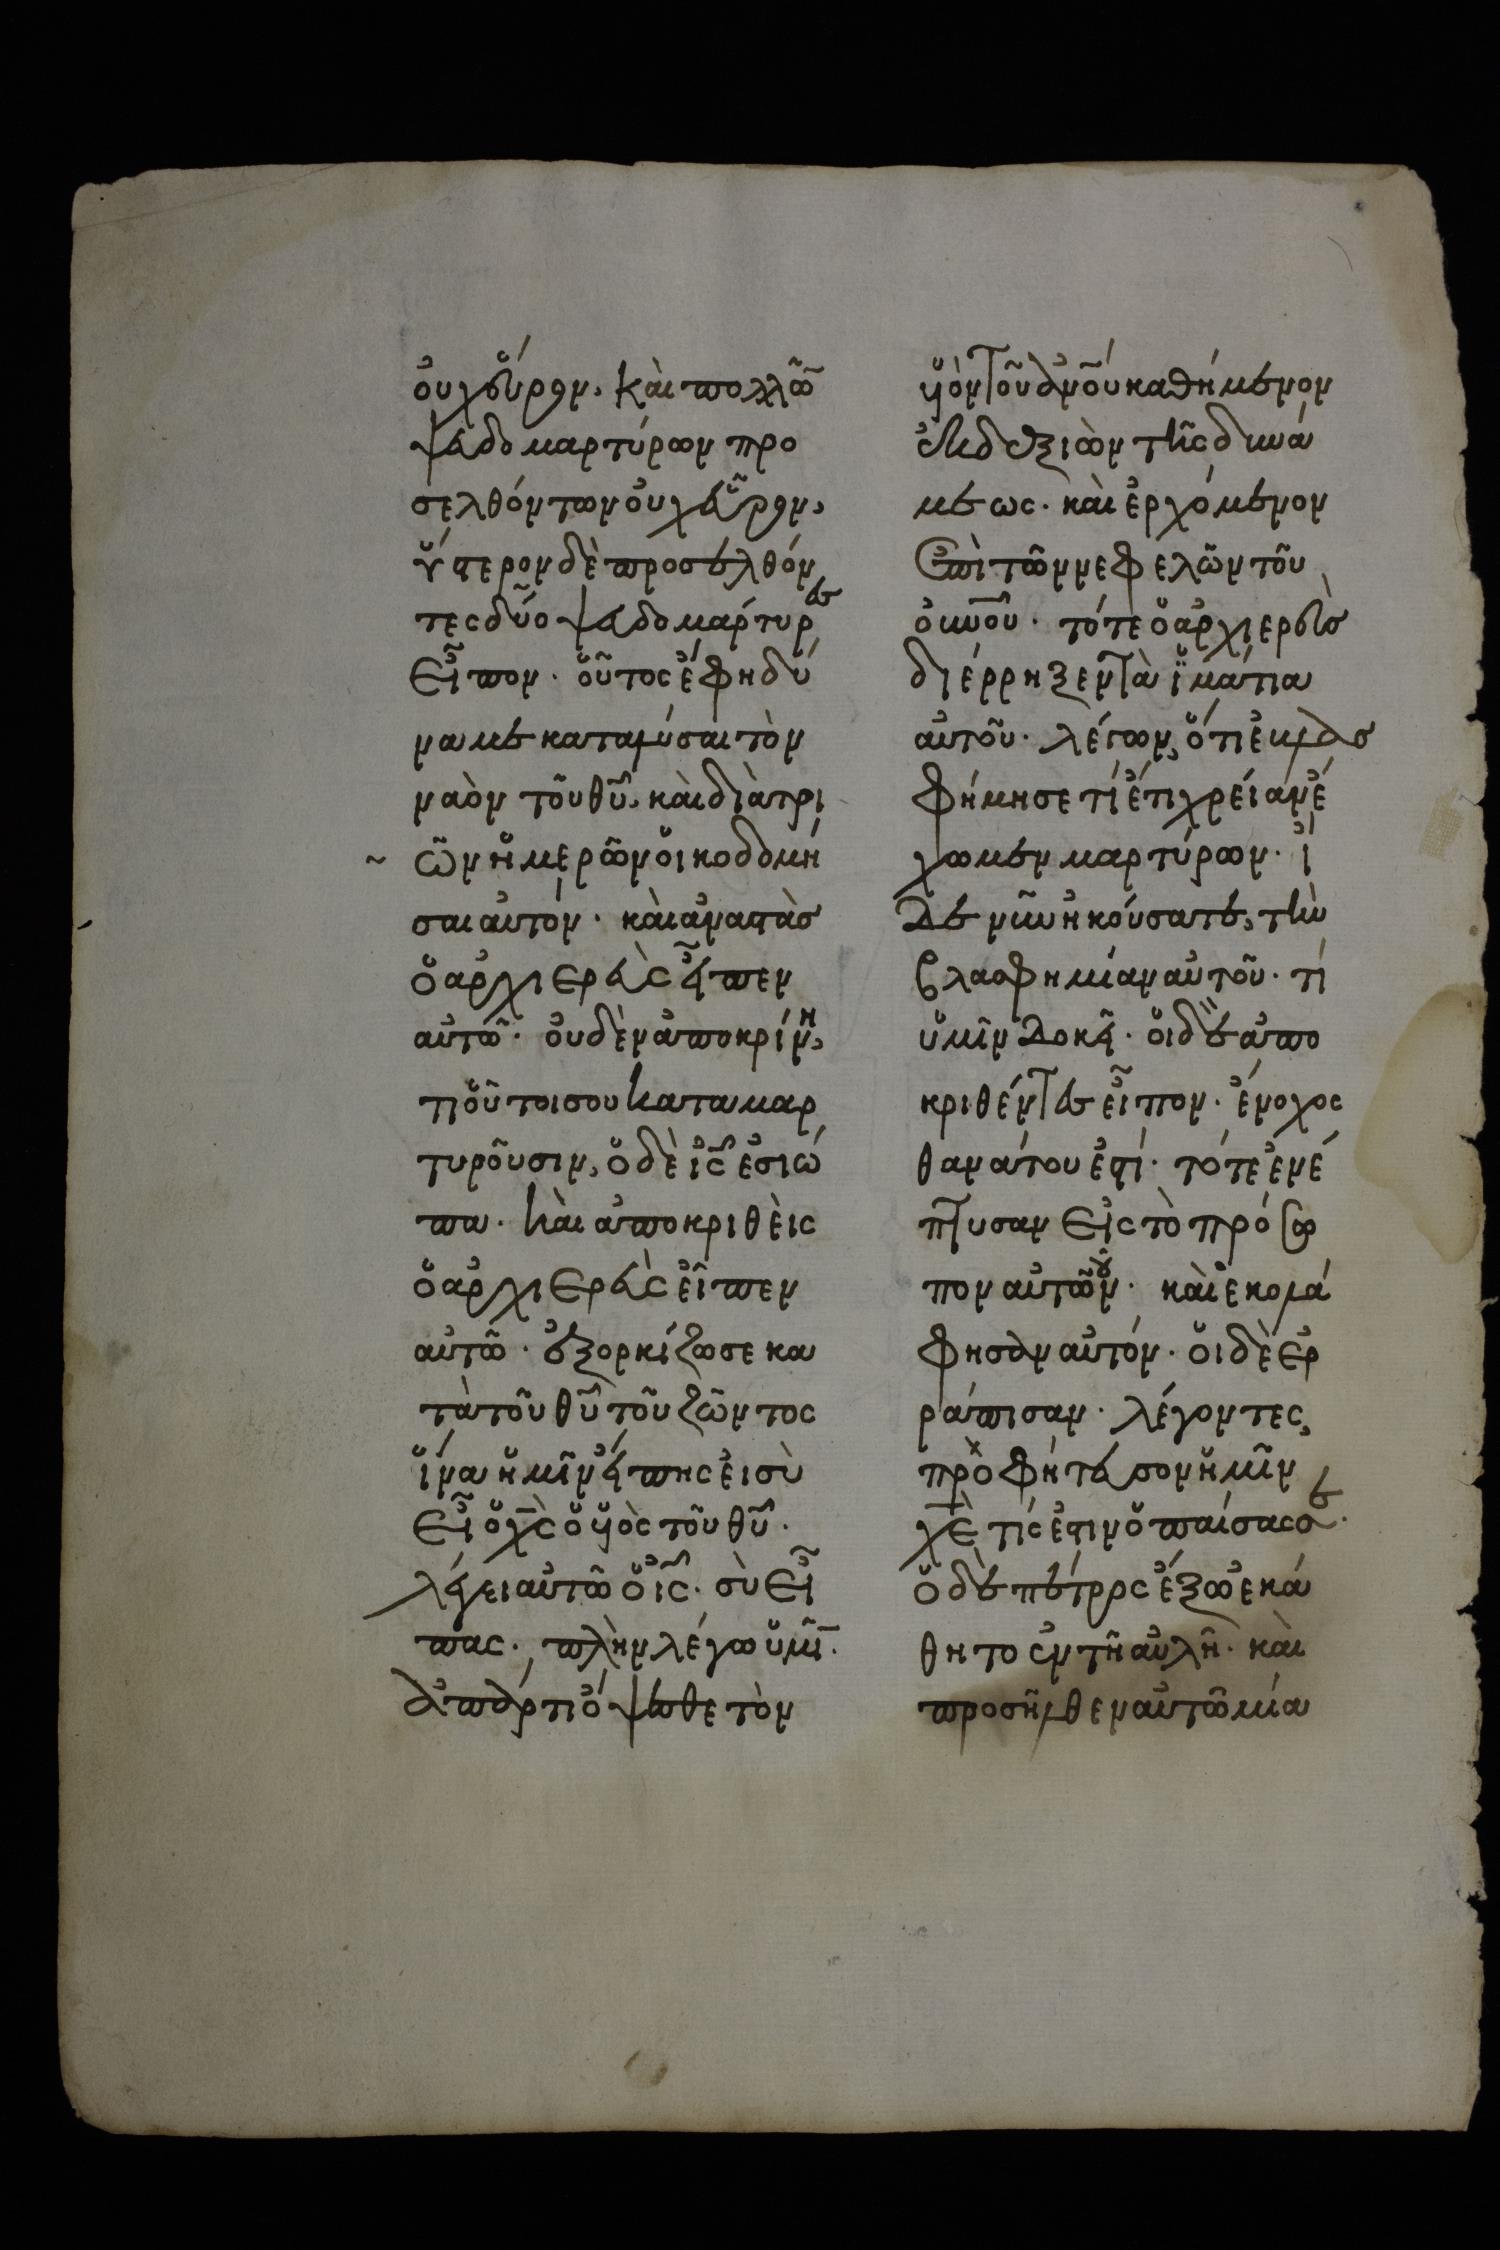 οὐχ εὗρον, καὶ πολλῶ̅
ψευδομαρτύρων προ
σελθόντων οὐχ εὗρον,
ὕστερον δὲ προσελθόν
τες δύο ψευδομάρτυρες
εἶπον· οὗτος ἔφη δύ
ναμαι καταλύσαι τὸν
ναὸν τοῦ θυ̅, καὶ διὰ τρι
ῶν ἡμερῶν οἰκοδομῆ
σαι αὐτόν· καὶ ἀναστὰς
ὁ ἀρχιερεὺς εἶπεν
αὐτῶ· οὐδὲν ἀποκρίνη,
τί οὗτοι σου καταμαρ
τυροῦσιν, ὁ δὲ ις̅ ἐσιώ
πα· καὶ ἀποκριθεὶς
ὁ ἀρχιερεὺς εἶπεν
αὐτῶ· ἐξορκίζω σε κα
τὰ τοῦ θυ̅ τοῦ ζῶντος
ἵνα ἡμῖν εἴπης εἰ σὺ
εἶ ὁ χς̅ ὁ υἱὸς τοῦ θυ̅·
λέγει αὐτῶ ὁ ις̅· σὺ εἶ
πας· πλὴν λέγω ὑμῖ̅·
ἀπάρτι ὄψεσθε τὸν
υἱὸν τοῦ ἀνου̅ καθήμενον
ἐκ δεξιῶν τῆς δυνά
μεως· καὶ ἐρχόμενον
ἐπὶ τῶν νεφελῶν τοῦ
οὐνου̅· τότε ὁ ἀρχιερεὺς
διέρρηξεν τὰ ἱμάτια
αὐτοῦ· λέγων, ὅτι ἐβλασ
φήμησε τί ἔτι χρείαν ἔ
χωμεν μαρτύρων· ἴ
δε νῦν ἠκούσατε, τὴν
βλασφημίαν αὐτοῦ· τί
ὑμῖν δοκεῖ· οἱ δὲ ἀπο
κριθέντες εἶπον· ἔνοχος
θανάτου ἐστί· τότε ἐνέ
πτυσαν εἰς τὸ πρόσω
πον αὐτοῦ· καὶ ἐκολά
φησαν αὐτόν· οἱ δὲ ἐρ
ράπισαν· λέγοντες,
προφήτευσον ἡμῖν
χε̅ τίς ἐστιν ὁ παίσας σε·
ὁ δὲ πέτρος ἔξω ἐκά
θητο ἐν τῆ αὐλῆ· καὶ
προσῆλθεν αὐτῶ μία